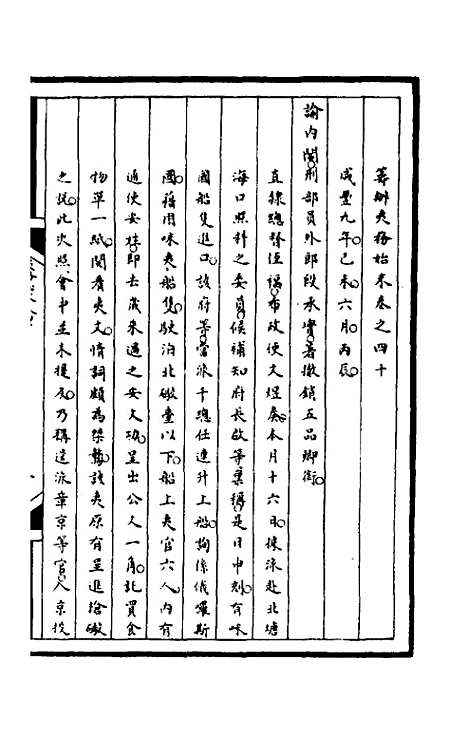 籌辦夷務始末卷之四十
咸豐九年己未六月丙辰
諭內閣刑部員外郎段承實著撤銷五品卿銜
直隸總督恆福布政使文煜奏本月十六日據派赴北塘
海口照料之委員候補知府長啟等稟稱是日申刻有𠸄
國船隻進口該府等當派千總任連升上船詢係俄羅斯
國藉用𠸄夷船隻駛泊北礮臺以下船上夷官六人內有
通使安桂即去歲來過之安文𤣱呈出公文一角託買食
物單一紙閱看夷文情詞頗為桀驁該夷原有呈進搶礮
之說此次照會中並未提及乃稱送派章京等官入京投